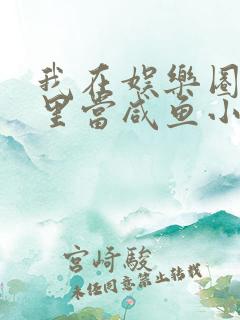 我在娱樂圈
里當咸鱼小
宮崎駿
未经同意禁止转载